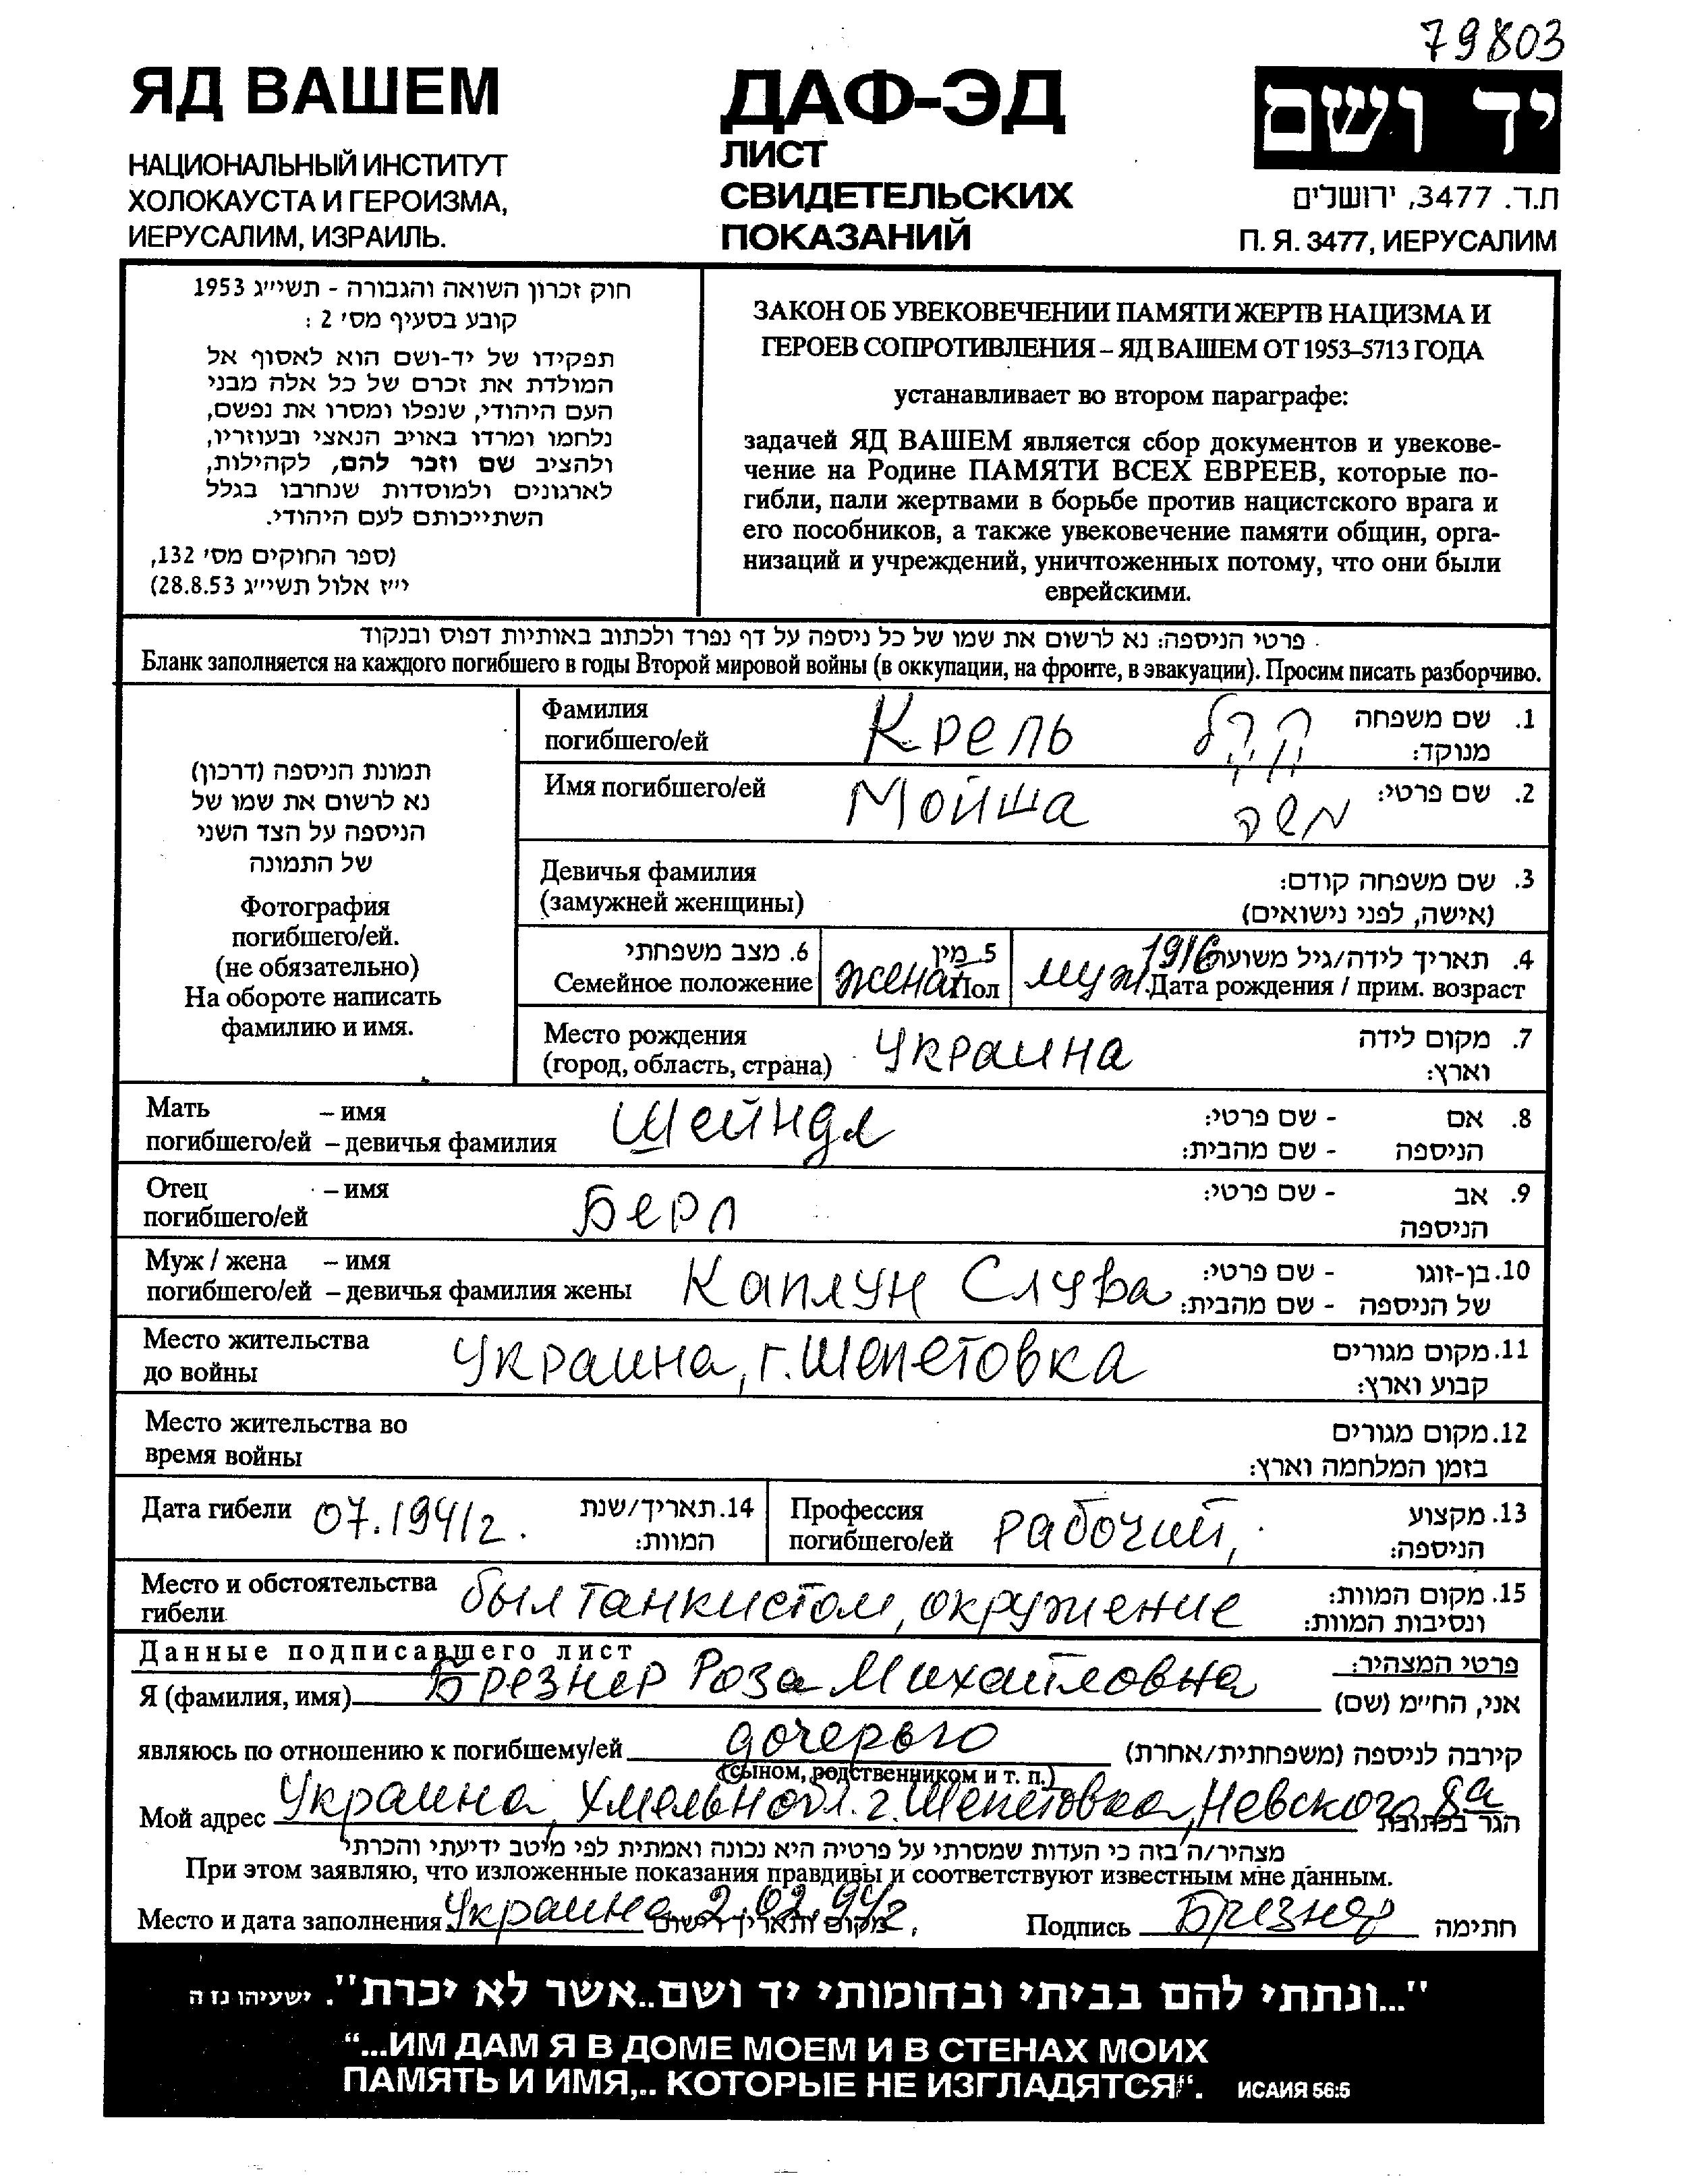 79803
ЯД ВАШЕМ
НАЦИОНАЛЬНЫЙ ИНСТИТУТ
ХОЛОКАУСТА И ГЕРОИЗМА,
ИЕРУСАЛИМ, ИЗРАИЛЬ.
ДАФ-ЭД
ЛИСТ
СВИДЕТЕЛЬСКИХ
ПОКАЗАНИЙ
יד ושם
ת.ד. 3477, ירושלים
П. Я. 3477, ИЕРУСАЛИМ
חוק זכרון השואה והגבורה - תשי״ג 1953
קובע בסעיף מס׳ 2 :
תפקידו של יד-ושם הוא לאסוף אל
המולדת את זכרם של כל אלה מבני
העם היהודי, שנפלו ומסרו את נפשם,
נלחמו ומרדו באויב הנאצי ובעוזריו,
ולהציב שם וזכר להם, לקהילות,
לארגונים ולמוסדות שנחרבו בגלל
השתייכותם לעם היהודי.
(ספר החוקים מס׳ 132,
י״ז אלול תשי״ג 28.8.53)
ЗАКОН ОБ УВЕКОВЕЧЕНИИ ПАМЯТИ ЖЕРТВ НАЦИЗМА И
ГЕРОЕВ СОПРОТИВЛЕНИЯ – ЯД ВАШЕМ ОТ 1953–5713 ГОДА
устанавливает во втором параграфе:
задачей ЯД ВАШЕМ является сбор документов и увекове-
чение на Родине ПАМЯТИ ВСЕХ ЕВРЕЕВ, которые по-
гибли, пали жертвами в борьбе против нацистского врага и
его пособников, а также увековечение памяти общин, орга-
низаций и учреждений, уничтоженных потому, что они были
еврейскими.
פרטי הניספה: נא לרשום את שמו של כל ניספה על דף נפרד ולכתוב באותיות דפוס ובנקוד
Бланк заполняется на каждого погибшего в годы Второй мировой войны (в оккупации, на фронте, в эвакуации). Просим писать разборчиво.
תמונת הניספה (דרכון)
נא לרשום את שמו של
הניספה על הצד השני
של התמונה
Фотография
погибшего/ей.
(не обязательно)
На обороте написать
фамилию и имя.
Фамилия
погибшего/ей
Крель
קרל
1. שם משפחה
מנוקד:
Имя погибшего/ей
Мойша
משה
2. שם פרטי:
Девичья фамилия
(замужней женщины)
3. שם משפחה קודם:
(אישה, לפני נישואים)
6. מצב משפחתי
Семейное положение
женат
5. מין
Пол
муж.
1916
4. תאריך לידה/גיל משוער
Дата рождения / прим. возраст
Место рождения
(город, область, страна)
Украина
7. מקום לידה
וארץ:
Мать – имя
погибшего/ей – девичья фамилия
Шейндл
8. אם - שם פרטי:
הניספה - שם מהבית:
Отец – имя
погибшего/ей
Берл
9. אב - שם פרטי:
הניספה
Муж / жена – имя
погибшего/ей – девичья фамилия жены
Каплун Слува
10. בן-זוגו - שם פרטי:
של הניספה - שם מהבית:
Место жительства
до войны
Украина, г. Шепетовка
11. מקום מגורים
קבוע וארץ:
Место жительства во
время войны
12. מקום מגורים
בזמן המלחמה וארץ:
Дата гибели
07.1941г.
14. תאריך/שנת
המוות:
Профессия
погибшего/ей
рабочий,
13. מקצוע
הניספה:
Место и обстоятельства
гибели
был танкистом, окружение
15. מקום המוות:
ונסיבות המוות:
Данные подписавшего лист
פרטי המצהיר:
Я (фамилия, имя) Брезнер Роза Михайловна
אני, הח״מ (שם)
являюсь по отношению к погибшему/ей дочерью
קירבה לניספה (משפחתית/אחרת)
(сыном, родственником и т. п.)
Мой адрес Украина, Хмельн.обл. г. Шепетовка, Невского 8а
הגר בכתובת
מצהיר/ה בזה כי העדות שמסרתי על פרטיה היא נכונה ואמתית לפי מיטב ידיעתי והכרתי
При этом заявляю, что изложенные показания правдивы и соответствуют известным мне данным.
Место и дата заполнения Украина 2.02.94г.
מקום ותאריך רישום
Подпись Брезнер
חתימה
"...ונתתי להם בביתי ובחומותי יד ושם..אשר לא יכרת". ישעיהו נז ה
“...ИМ ДАМ Я В ДОМЕ МОЕМ И В СТЕНАХ МОИХ
ПАМЯТЬ И ИМЯ,.. КОТОРЫЕ НЕ ИЗГЛАДЯТСЯ“. ИСАИЯ 56:5